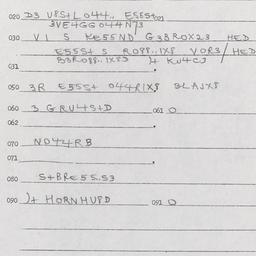 020 D3 VPS+L 044.. E555+001
3VE4GG044N73
030 V1 S KE55ND G3BR0X23 HED
E555+ S R0PP..1X8 V0R3/HED
B3R0PP..1X83 )+ KU+CJ
031
050 3R E555+ 044R1X8 3LAJX8
060 3 GRU4S+D 061 0
062
070 N044RB
071
080 S+BRE55.53
090 )+ HORNHUPD 091 0